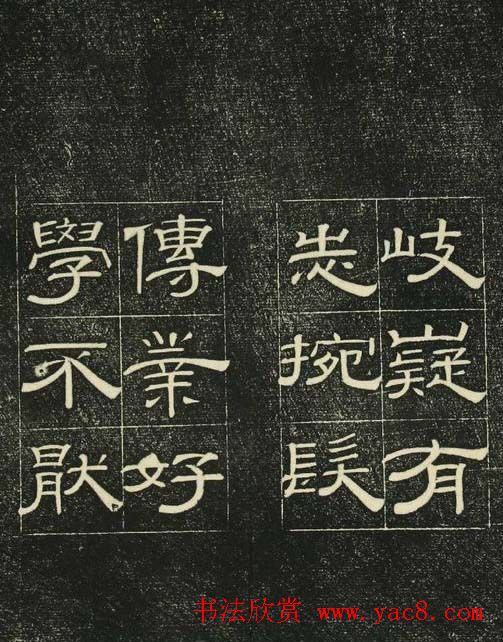 岐嶷有
志捥髮
傳業好
學不猒
书法欣赏 www.yac8.com